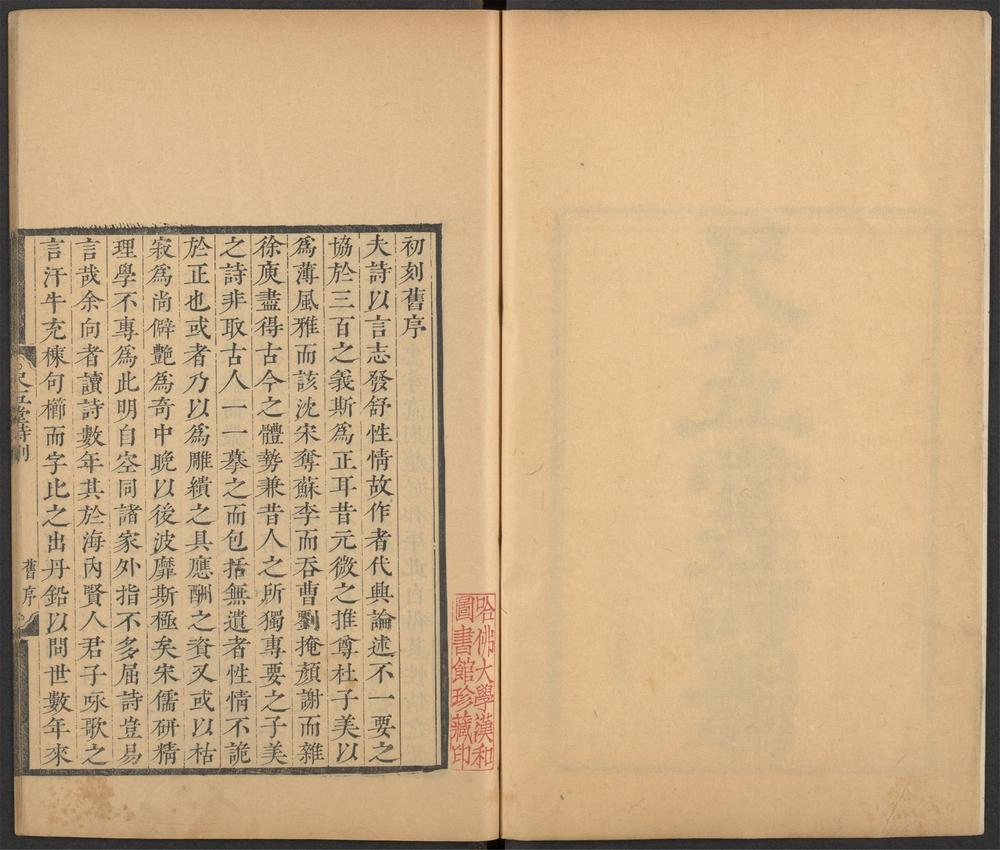 初刻舊序
夫詩以言志發舒性情故作者代興論述不一要之
協於三百之義斯為正耳昔元微之推尊杜子美以
為薄風雅而該沈宋奪蘇李而吞曹劉掩顏謝而雜
徐庾盡得古今之體勢兼昔人之所獨專要之子美
之詩非取古人一一摹之而包括無遺者性情不詭
於正也或者乃以為雕繢之具應酬之資又或以枯
寂為尚僻艷為奇中晚以後波靡斯極矣宋儒研精
理學不專為此明自空同諸家外指不多屈詩豈易
言哉余向者讀詩數年其於海內賢人君子咏歌之
言汗牛充棟句櫛而字比之出丹鉛以問世數年來
尺五堂詩刪
舊序
哈佛大學漢和
圖書館珍藏印